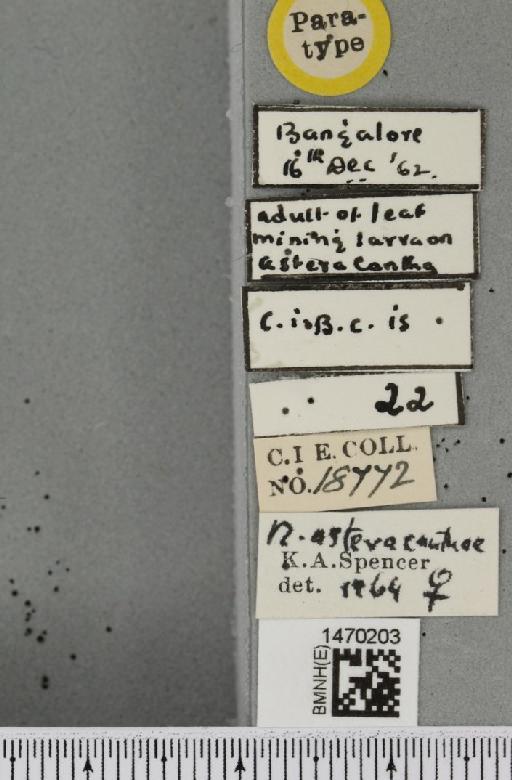 Para-
type
Bangalore
16th Dec '62.
adult of leaf
mining larva on
asteracantha
C.i.B.C. is .
. . 22
C.I E. COLL.
NO. 18772
n. asteracanthae
K.A.Spencer
det. 1964 ♀
1470203
BMNH(E)